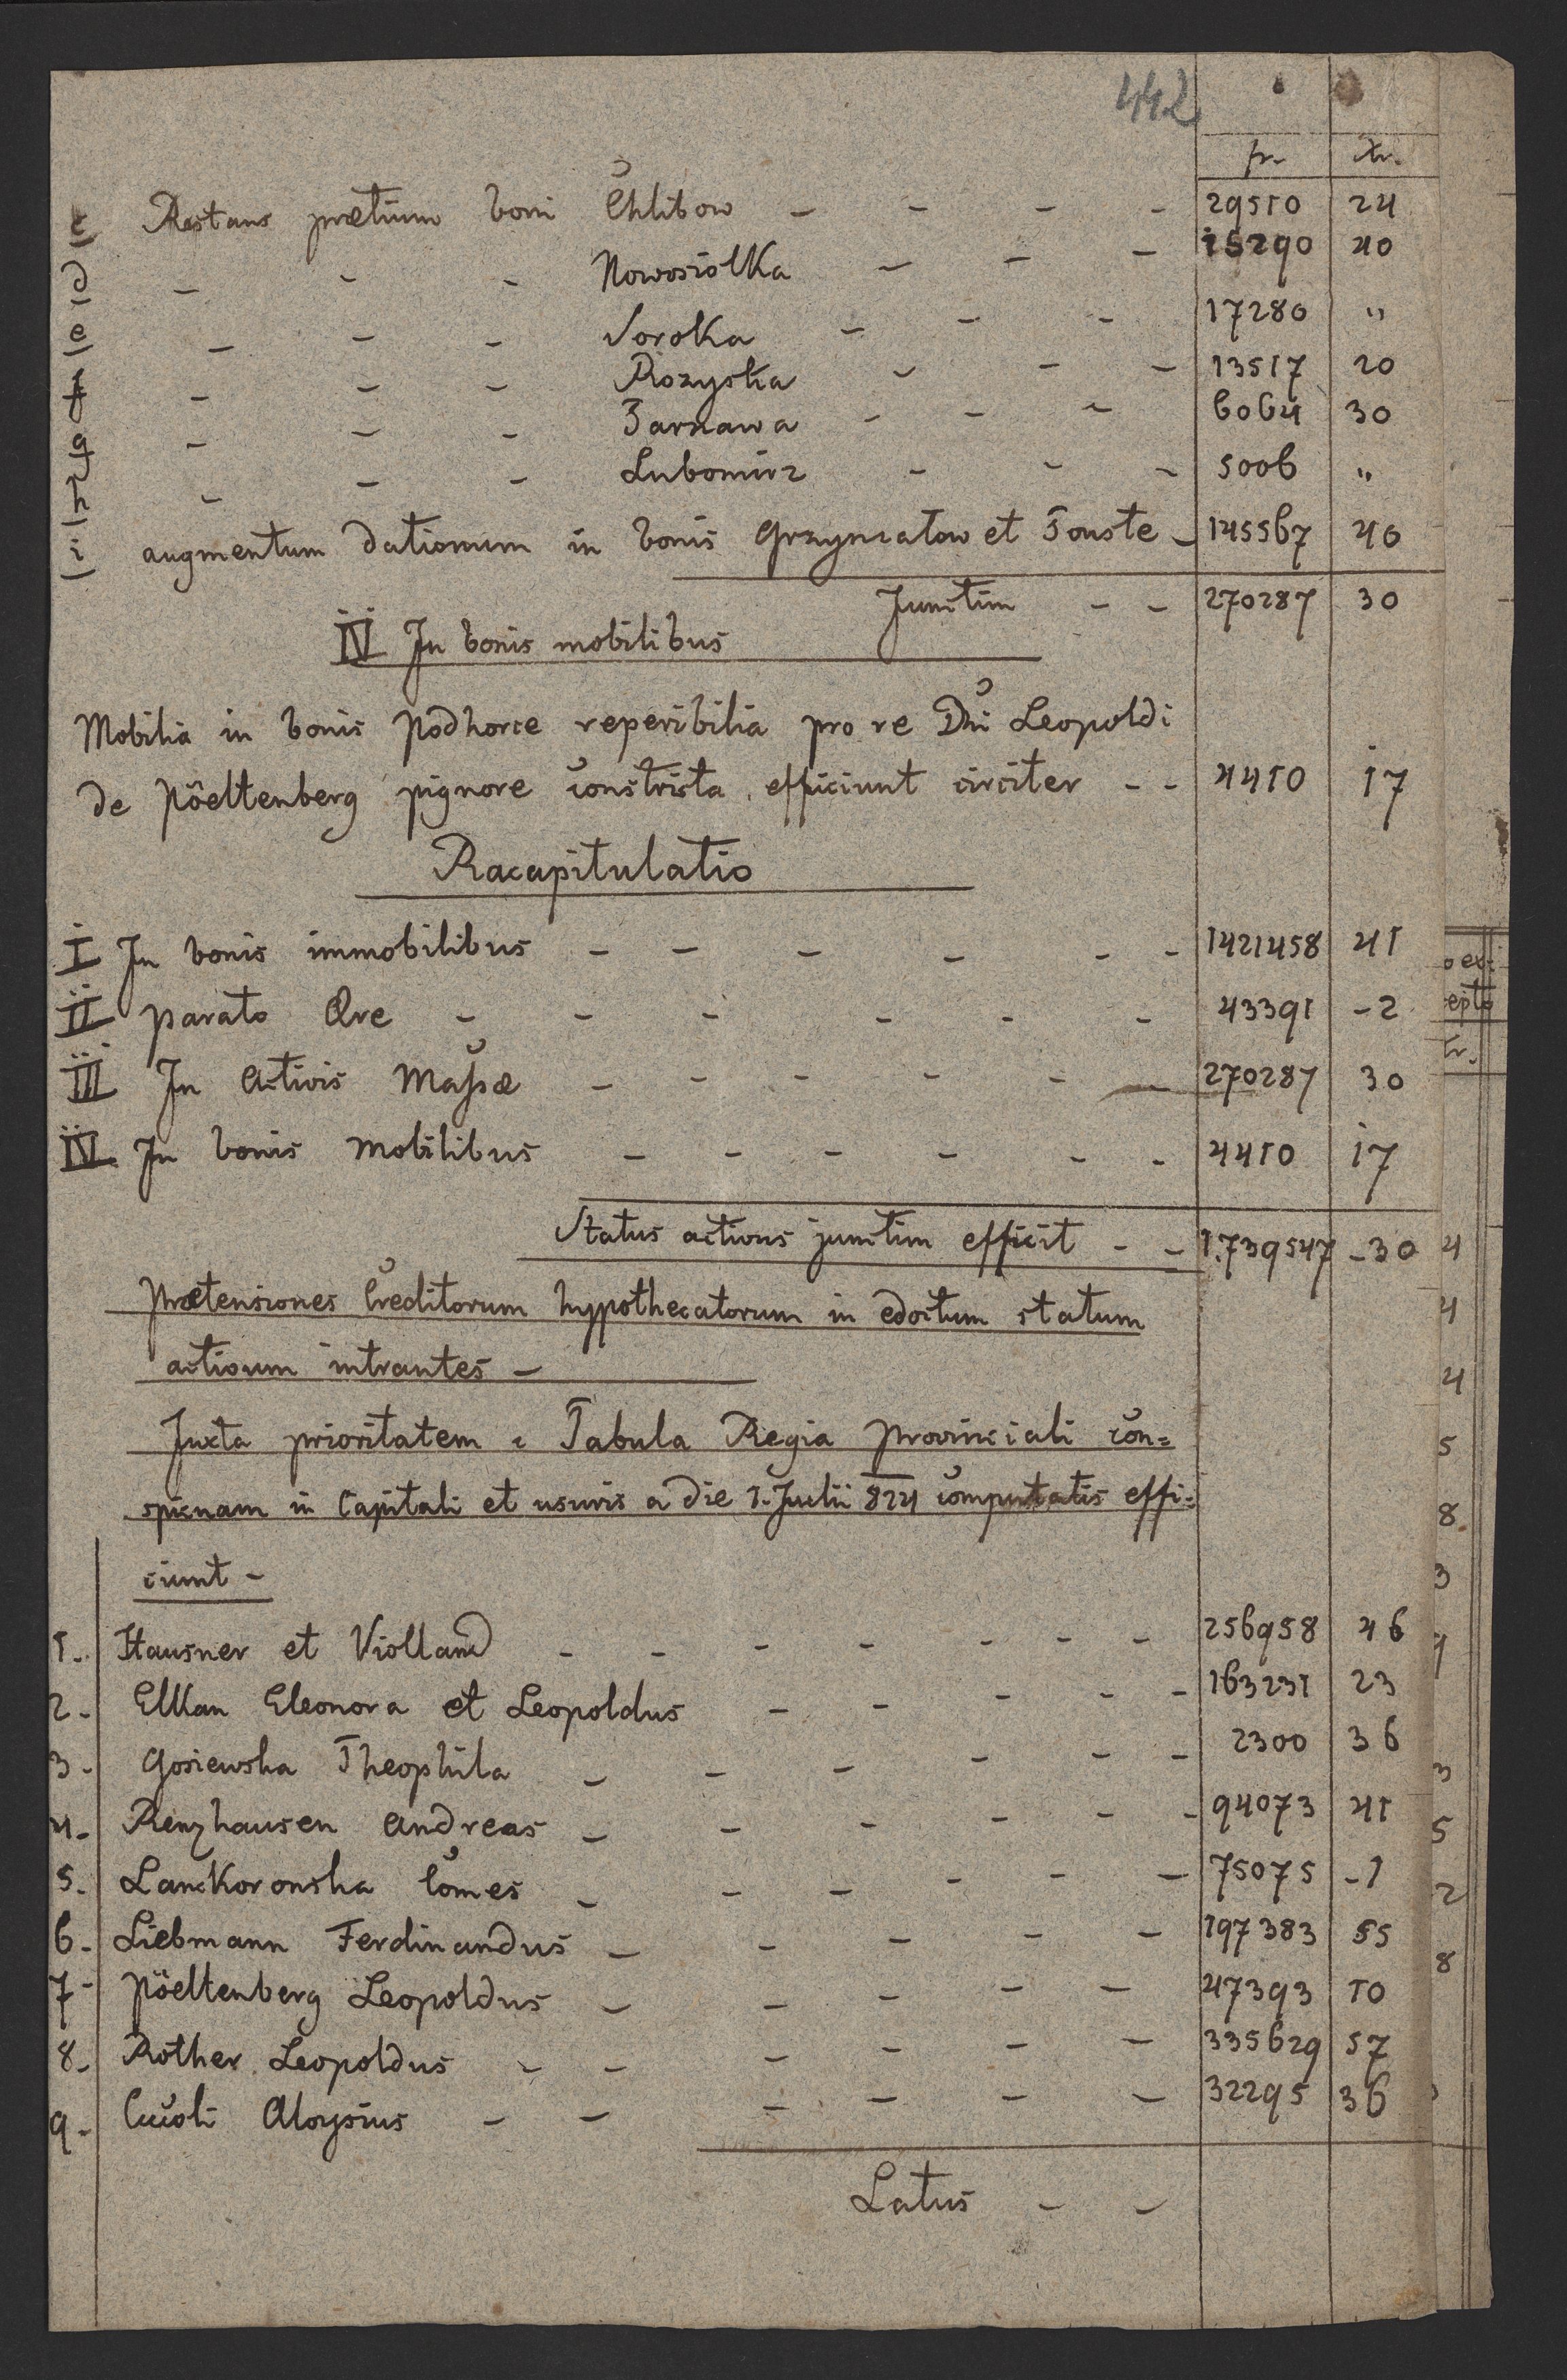 442
fr. Xr.
c Restans prætium boni Chlibow - - - - 29510 24
d - - - Nowosiolka - - - 15290 40
e - - - Soroka - - - 17280 "
f - - - Rozyska - - - 13517 20
g - - - Tarnawa - - - 6064 30
h - - - Lubomirz - - - 5006 "
i augmentum dationum in bonis Grzymalow et Touste - 145567 40
Junctim - - 270287 30
IV In bonis mobilibus
Mobilia in bonis Podhorce reperibilia pro re Dni Leopoldi
de Pöeltenberg pignore constricta, efficiunt circiter - - 4410 17
Racapitulatio
I In bonis immobilibus - - - - - - 1421458 41
II parato Ære - - - - - - 43391 -2
III In Activis Massæ - - - - - - 270287 30
IV In bonis Mobilibus - - - - - - 4410 17
Status activus junctim efficit - - 1.739547 -30
Prætensiones Creditorum hypothecatorum in edoctum statum
activum intrantes -
Juxta prioritatem e Tabula Regia Provinciali con=
spicuam in Capitali et usuris a die 1. Julii 824 computatis effi=
ciunt -
1. Hausner et Violland - - - - - - - 256958 46
2. Elkan Eleonora et Leopoldus - - - - - 163231 23
3. Gosiewska Theophila - - - - - - 2300 36
4. Renzhausen Andreas - - - - - - 94073 41
5. Lanckoronska Comes - - - - - - 75075 -1
6. Liebmann Ferdinandus - - - - - 197383 55
7. Pöeltenberg Leopoldus - - - - - 47393 10
8. Rother Leopoldus - - - - - - 335629 57
9. Aloysius - - - - - - 32295 36
Latus - -